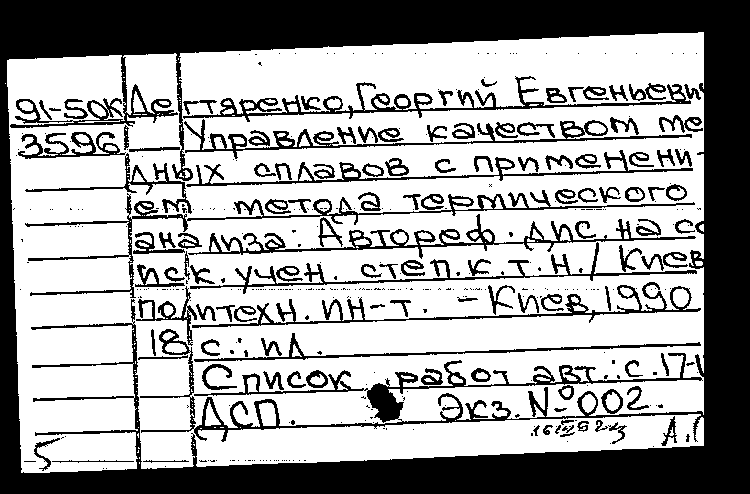 91-50К Дегтяренко, Георгий Евгеньеви
3596 Управление качеством ме
дных сплавов с применени-
ем метода термического
анализа: Автореф. дис. на со
иск. учен. степ. к.т.н. / Киев
политехн. ин-т. - Киев, 1990
18 с.: ил.
Список работ авт.: с. 17-1
ДСП. Экз. №002.
5 А.Г